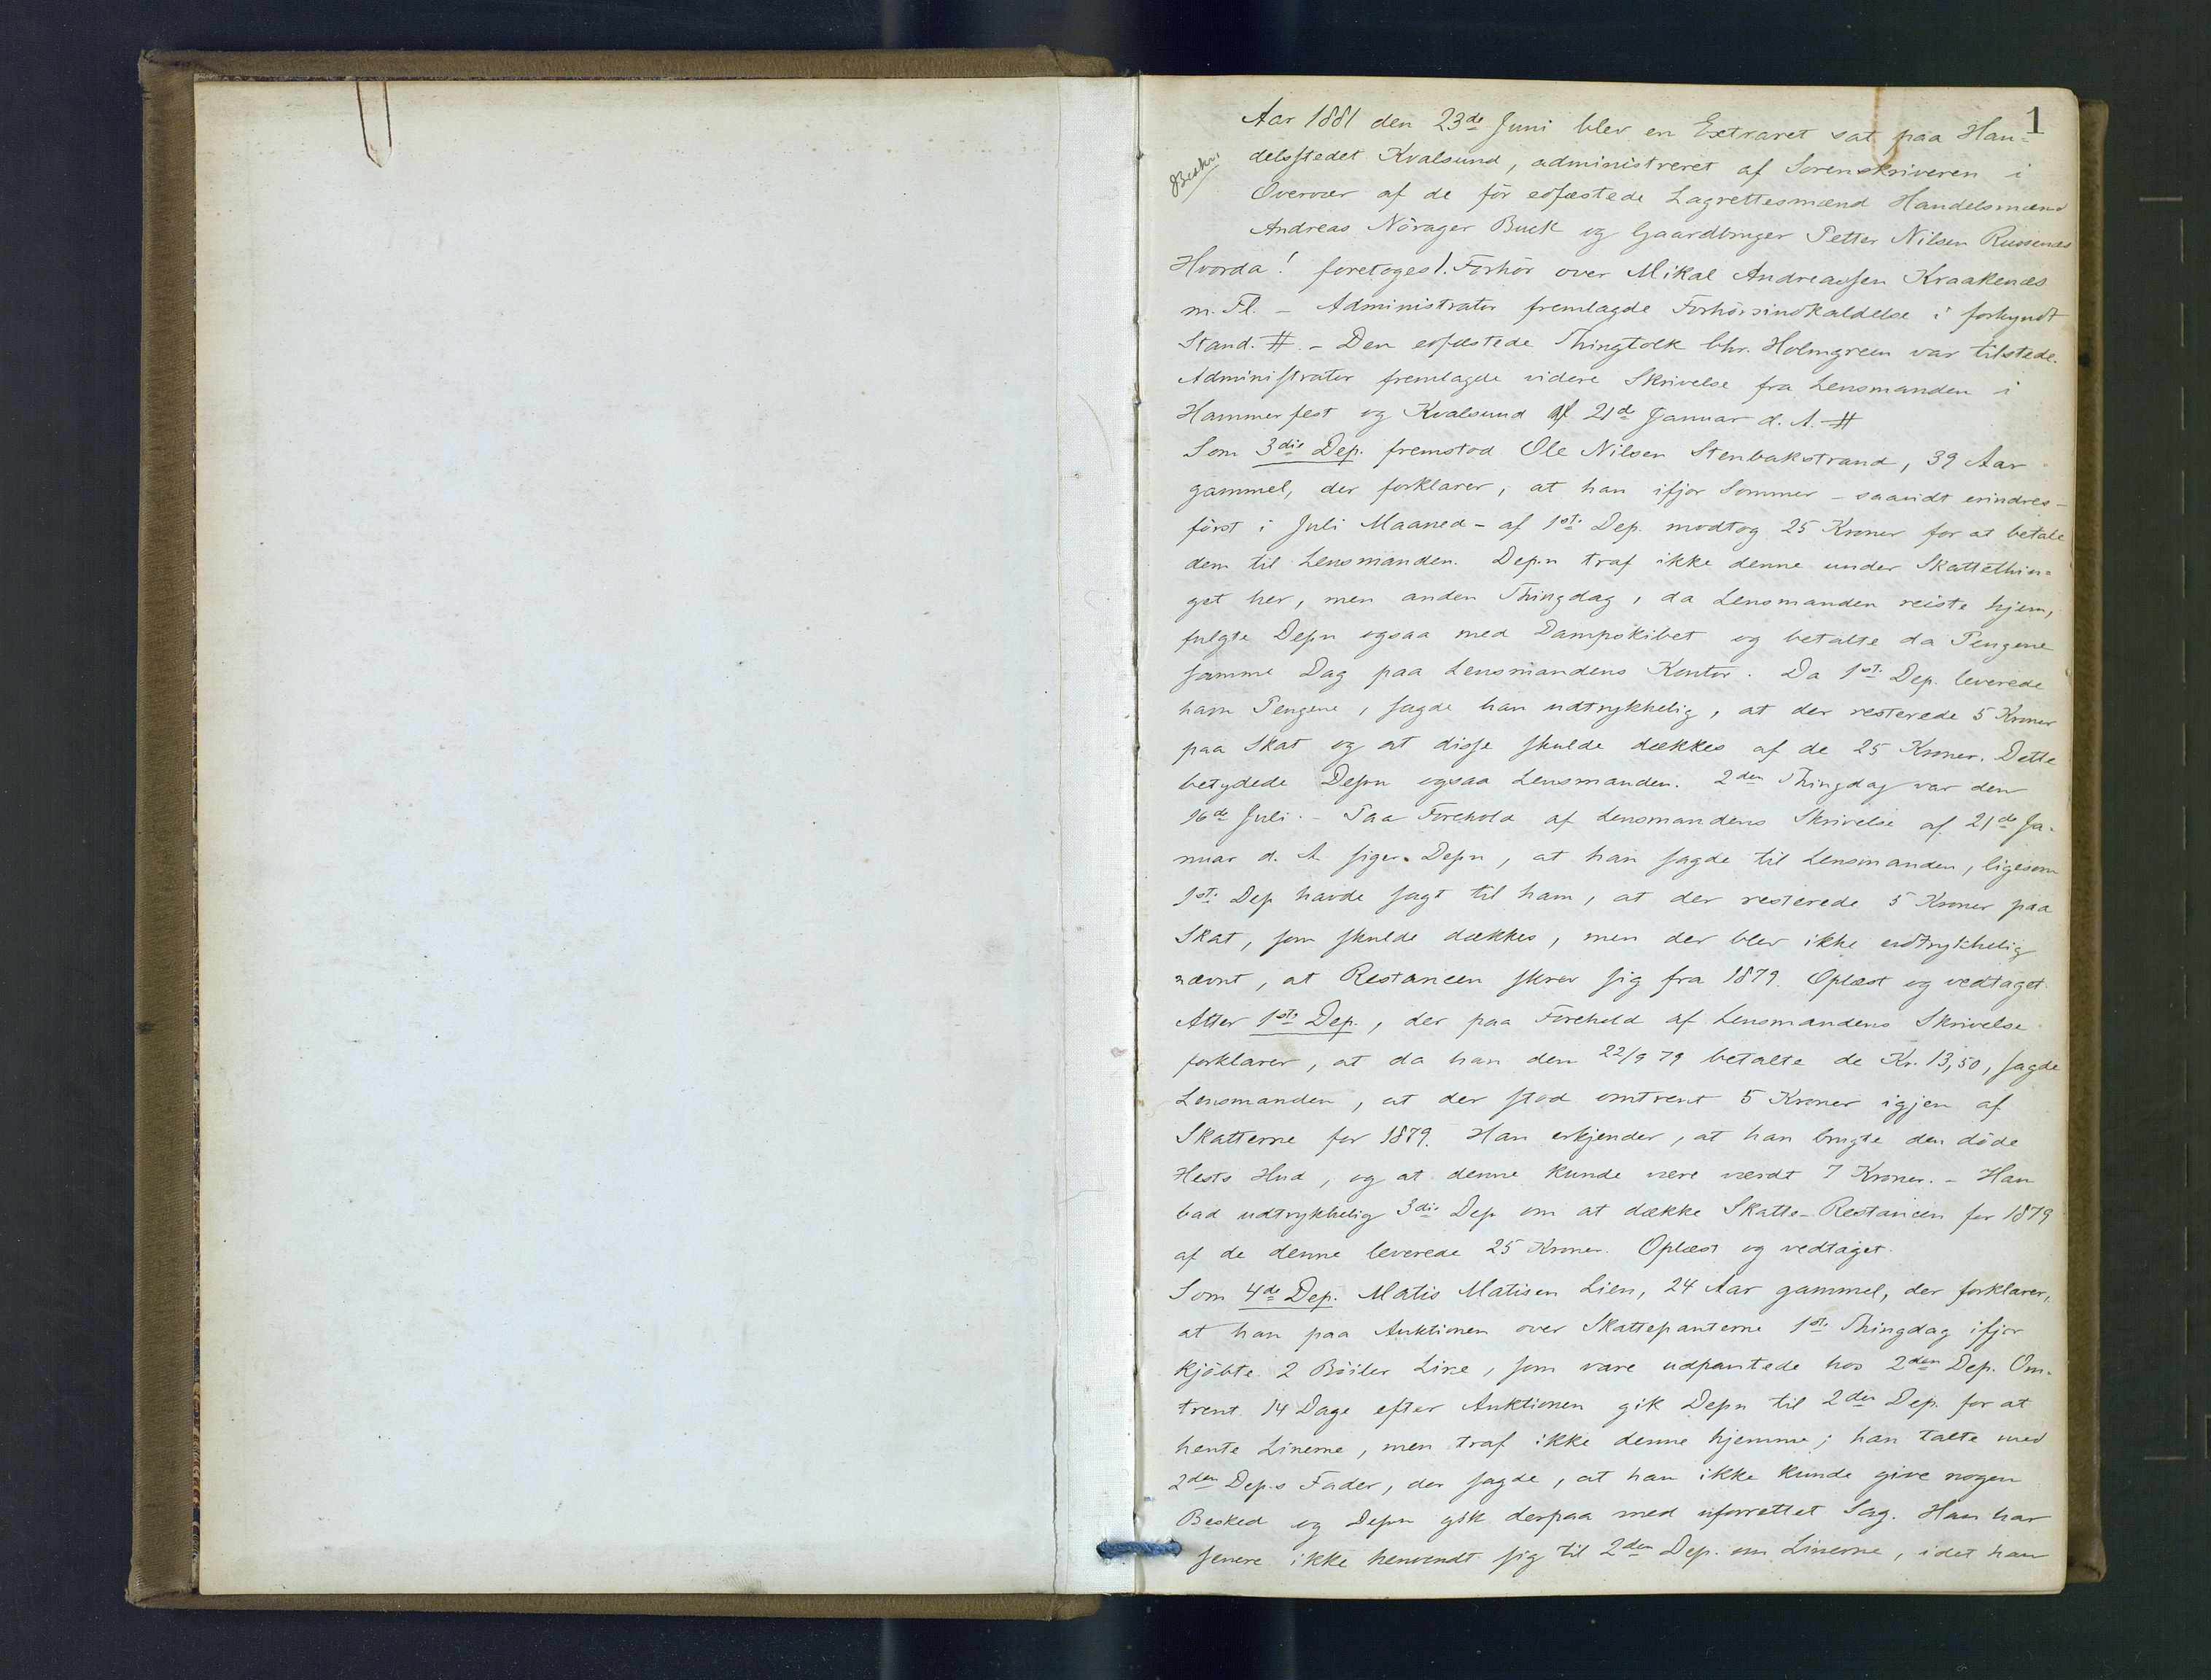 1
Aar 1881 den 23de Juni blev en Extraret sat paa Han-
Beskr.
delsstedet Kvalsund, administreret af Sorenskriveren i
Overvær af de før edfæstede Lagrettesmænd Handelsmand
Andreas Nörager Buck og Gaardbruger Petter Nilsen Russenæs
Hvorda! foretoges 1. Forhör over Mikal Andreassen Kraakenæs
m. Fl. – Administrator fremlagde Forhörsindkaldelse i forkyndt
Stand. # – Den edfæstede Thingtolk Chr. Holmgreen var tilstede.
Administrator fremlagde videre Skrivelse fra Lensmanden i
Hammerfest og Kvalsund af 21de Januar d. A. #
Som 3die Dep. fremstod Ole Nilsen Stenbakstrand, 39 Aar
gammel, der forklarer, at han ifjor Sommer – saavidt erindres –
först i Juli Maaned – af 1ste Dep. modtog 25 Kroner for at betale
dem til Lensmanden. Depn traf ikke denne under Skattethin-
get her, men anden Thingdag, da Lensmanden reiste hjem,
fulgte Depn ogsaa med Dampskibet og betalte da Pengene
samme Dag paa Lensmandens Kontor. Da 1ste Dep. leverede
ham Pengene, sagde han udtrykkelig, at der resterede 5 Kroner
paa Skat og at disse skulde dækkes af de 25 Kroner. Dette
betydede Depn ogsaa Lensmanden. 2den Thingdag var den
16de Juli. – Paa Forehold af Lensmandens Skrivelse af 21de Ja-
nuar d. A. siger Depn, at han sagde til Lensmanden, ligesom
1ste Dep havde sagt til ham, at der resterede 5 Kroner paa
Skat, som skulde dækkes, men der blev ikke udtrykkelig
nævnt, at Restancen skrev sig fra 1879. Oplæst og vedtaget.
Atter 1ste Dep., der paa Forehold af Lensmandens Skrivelse
forklarer, at da han den 22/9 79 betalte de Kr. 13,50, sagde
Lensmanden, at der stod omtrent 5 Kroner igjen af
Skatterne for 1879. Han erkjender, at han brugte den döde
Hests Hud, og at denne kunde være værdt 7 Kroner. – Han
bad udtrykkelig 3die Dep om at dække Skatte-Restancen for 1879
af de denne leverede 25 Kroner. Oplæst og vedtaget.
Som 4de Dep. Matis Matisen Lien, 24 Aar gammel, der forklarer,
at han paa Auktionen over Skattepanterne 1ste Thingdag ifjor
kjöbte 2 Böiler Line, som vare udpantede hos 2den Dep. Om-
trent 14 Dage efter Auktionen gik Depn til 2den Dep. for at
hente Linerne, men traf ikke denne hjemme; han talte med
2den Dep.s Fader, der sagde, at han ikke kunde give nogen
Besked og Depn gik derpaa med uforrettet Sag. Han har
senere ikke henvendt sig til 2den Dep. om Linerne, idet han